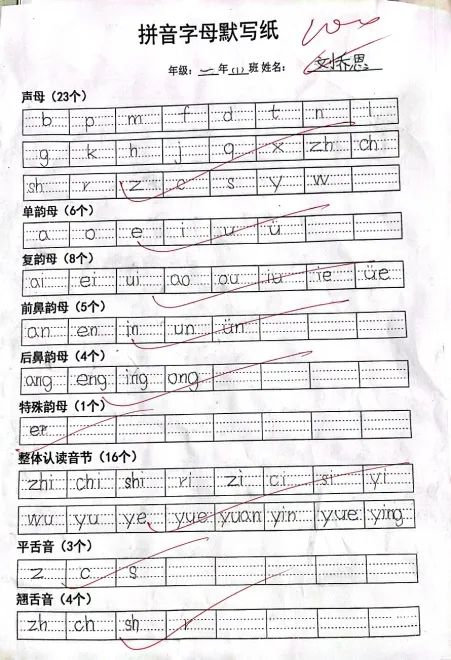 拼音字母默写纸
100
年级：一年(1)班 姓名：刘乔恩
声母（23个）
b p m f d t n l
g k h j q x zh ch
sh r z c s y w
单韵母（6个）
a o e i u ü
复韵母（8个）
ai ei ui ao ou iu ie üe
前鼻韵母（5个）
an en in un ün
后鼻韵母（4个）
ang eng ing ong
特殊韵母（1个）
er
整体认读音节（16个）
zhi chi shi ri zi ci si yi
wu yu ye yue yuan yin yue ying
平舌音（3个）
z c s
翘舌音（4个）
zh ch sh r